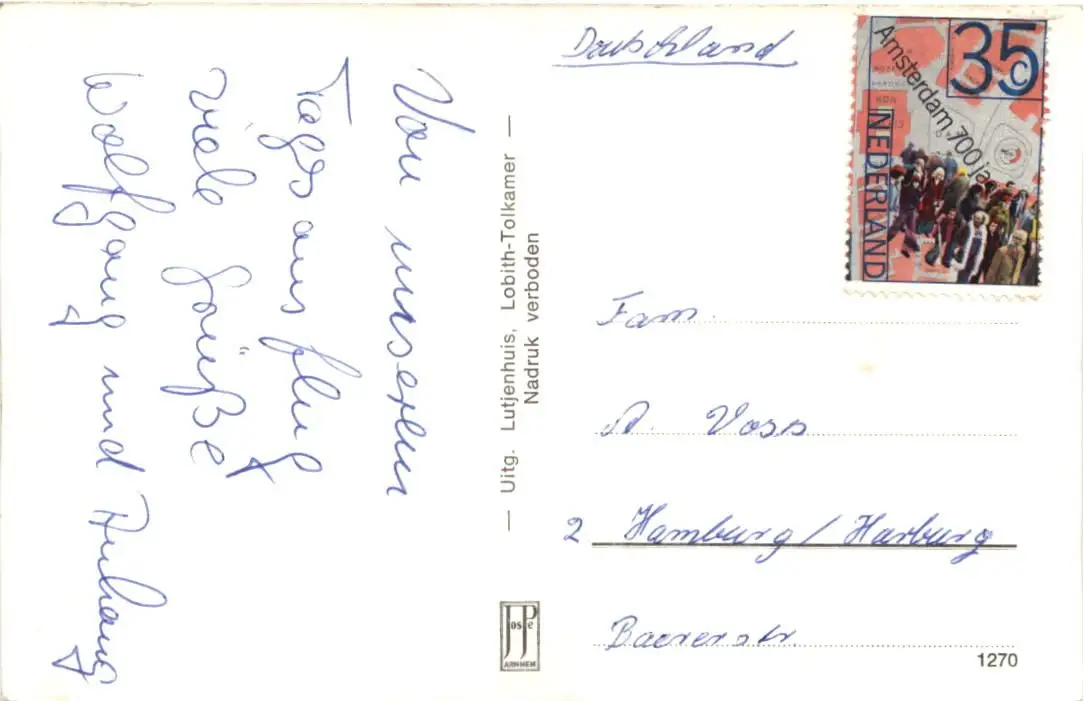 Von unserem
Tagesausflug
viele Grüße
Wolfgang und Anhang
— Uitg. Lutjenhuis, Lobith-Tolkamer —
Nadruk verboden
JosPé
ARNHEM
Deutschland
35c
Amsterdam 700 ja
NEDERLAND
Fam.
A. Voss
2 Hamburg/Harburg
Baererstr.
1270